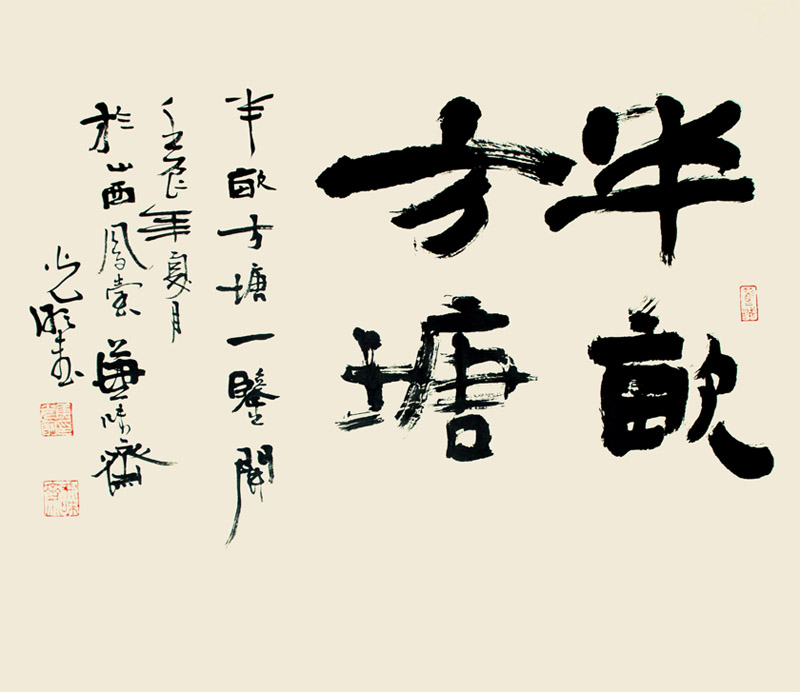 半畝
方塘
半畝方塘一鑒開
壬辰年夏月
於山西鳳臺味齋
光書